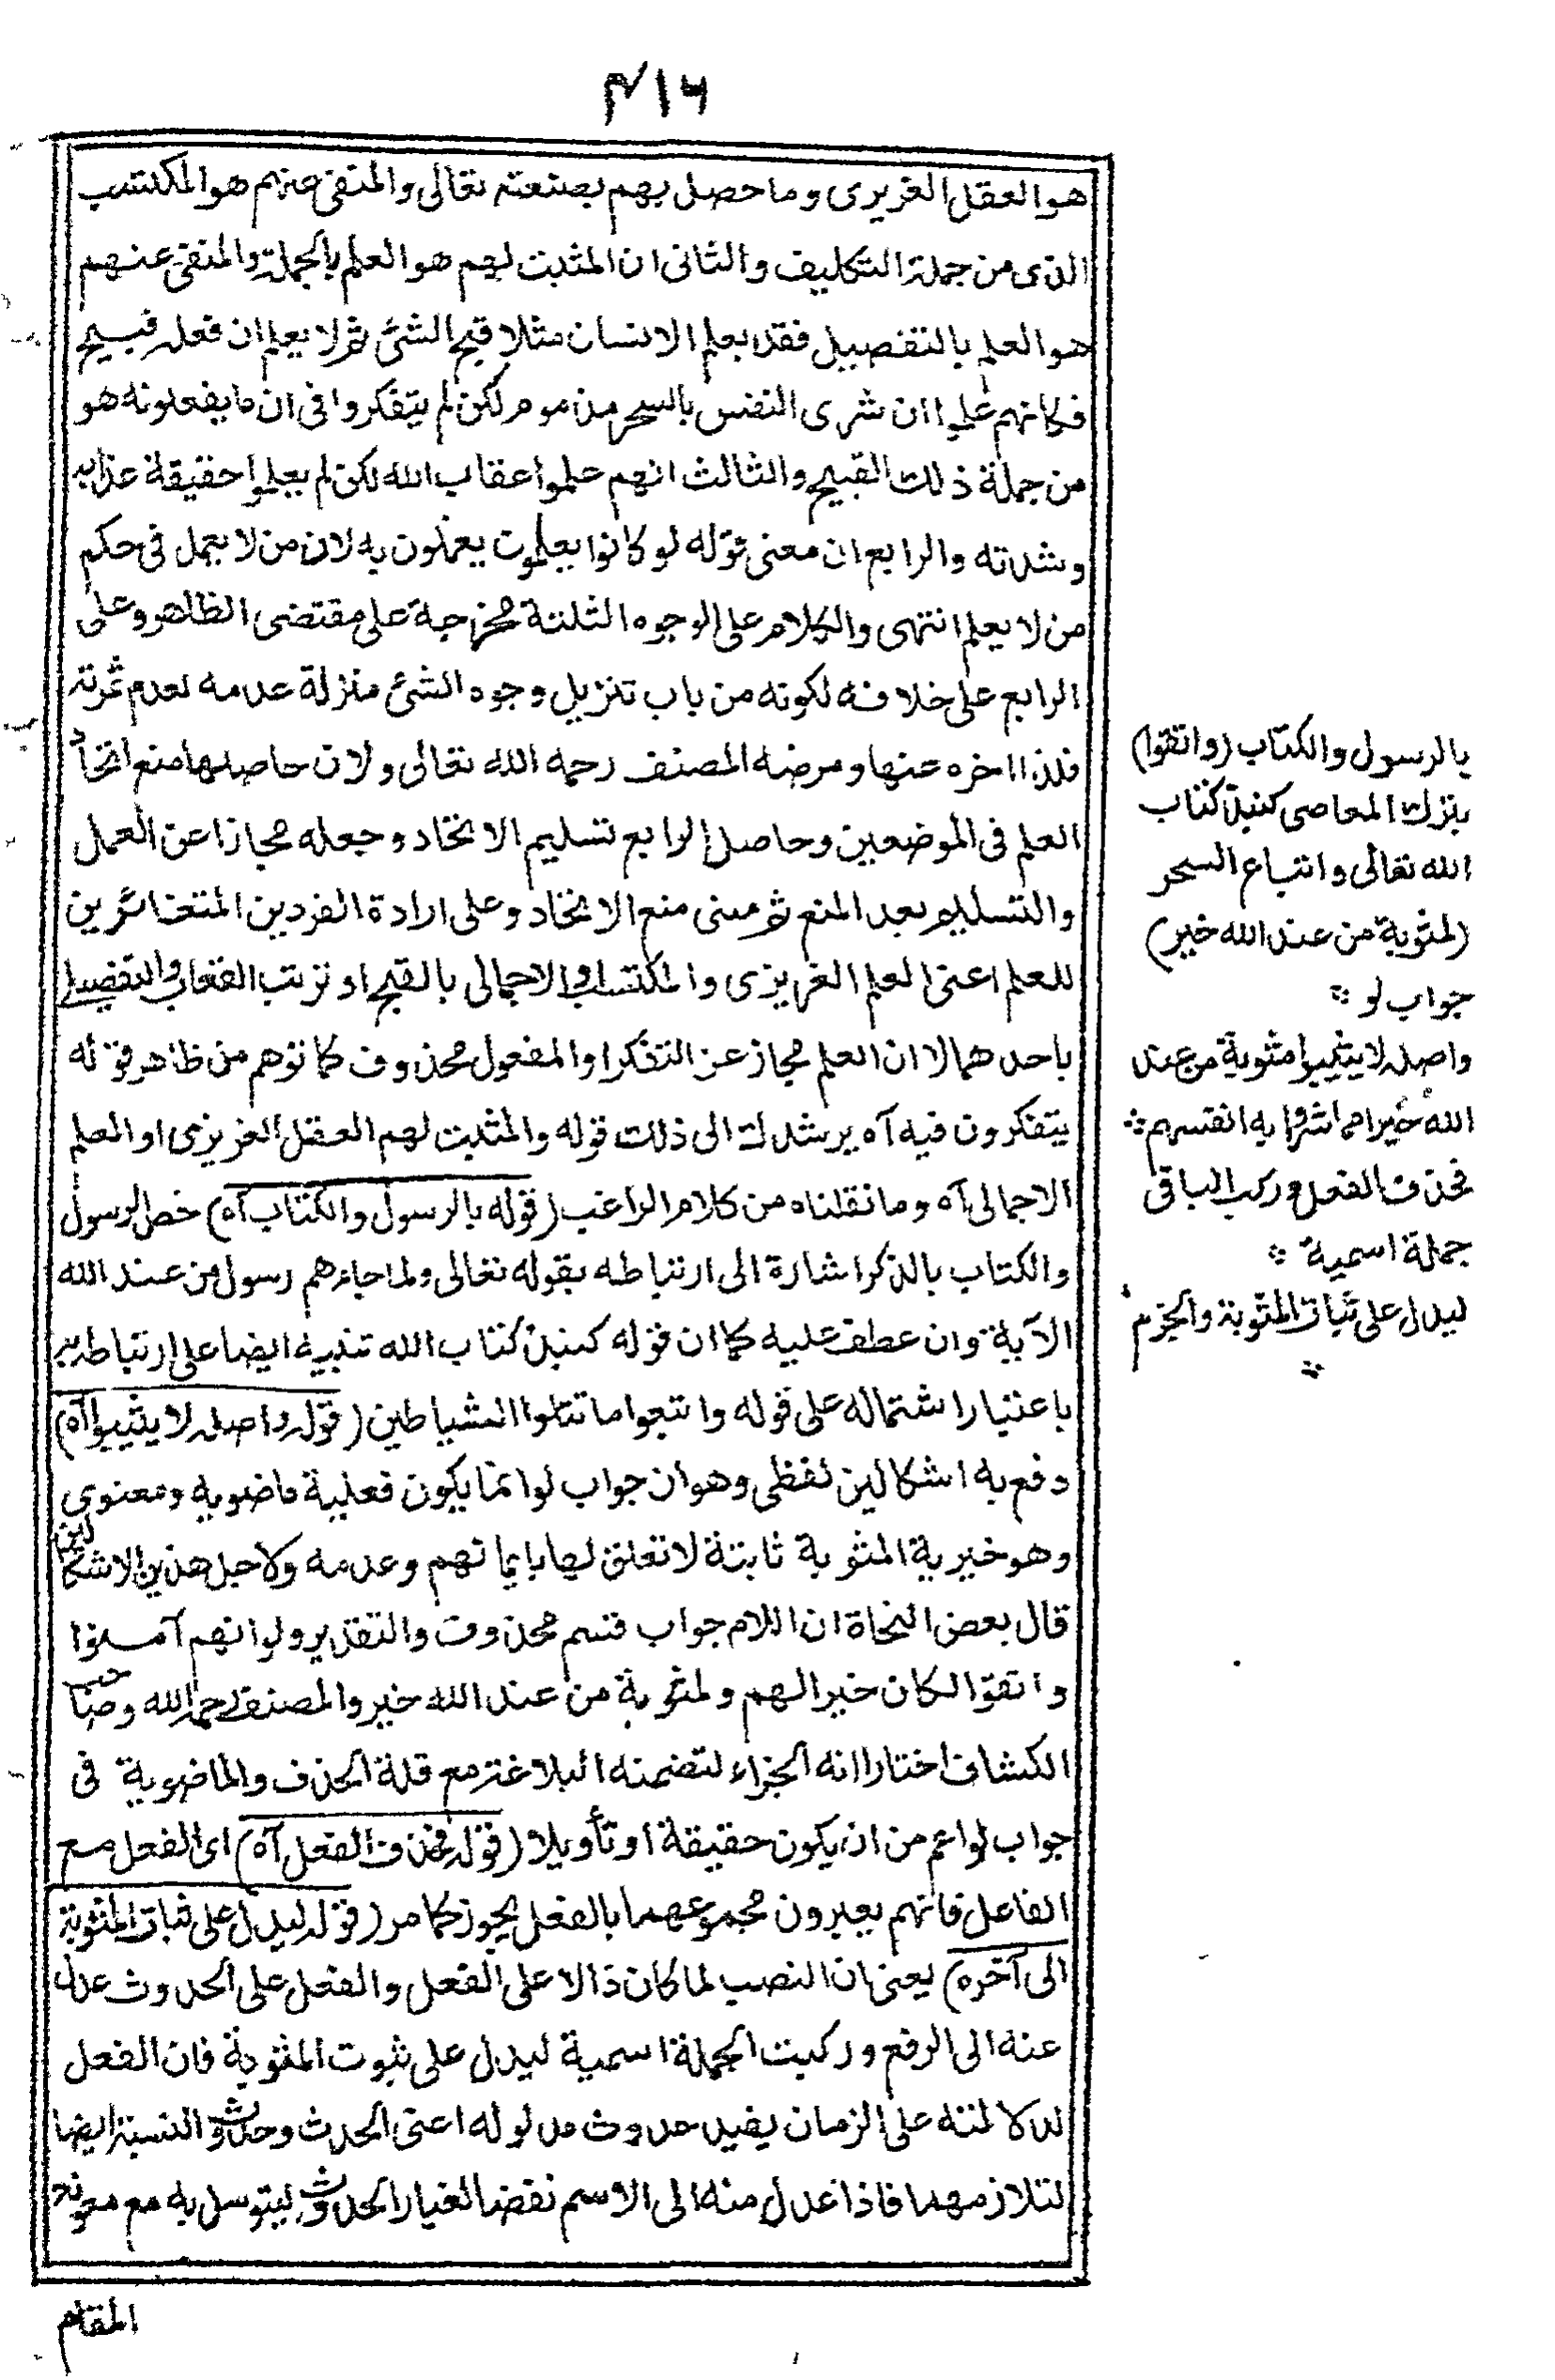 ٤١٦
هو العقل الغريزى وما حصل بهم بصنعته تعالى والمنفى عنهم هو المكتسب
الذى من جملة التكليف والثانى ان المثبت لهم هو العلم بالجملة والمنفى عنهم
هو العلم بالتفصيل فقد يعلم الانسان مثلا قبح الشئ ثم لا يعلم ان فعله قبيح
فكانهم علموا ان شرى النفس بالسحر مذموم لكن لم يتفكروا فى ان ما يفعلونه هو
من جملة ذلك القبيح والثالث انهم علموا عقاب الله لكن لم يعلموا حقيقة عذابه
وشدته والرابع ان معنى قوله لو كانوا يعلمون يعملون به لان من لا يعمل فى حكم
من لا يعلم انتهى والكلام على الوجوه الثلثة مخرجة على مقتضى الظاهر وعلى
الرابع على خلافه لكونه من باب تنزيل وجود الشئ منزلة عدمه لعدم ثمرته
فلذا اخره عنها ومرضه المصنف رحمه الله تعالى ولان حاصلها منع اتحاد
العلم فى الموضعين وحاصل الرابع تسليم الاتحاد وجعله مجازا عن العمل
والتسليم بعد المنع ثم مبنى منع الاتحاد وعلى ارادة الفردين المتغائرين
للعلم اعنى العلم الغريزى والمكتسب او الاجمالى بالقبح او ترتب العقاب والتفصيلى
باحدهما لا ان العلم مجاز عن التفكر او المفعول محذوف كما توهم من ظاهر قوله
يتفكرون فيه آه يرشدك الى ذلك قوله والمثبت لهم العقل الغريزى او العلم
الاجمالى آه وما نقلناه من كلام الراغب (قوله بالرسول والكتاب آه) خص الرسول
والكتاب بالذكر اشارة الى ارتباطه بقوله تعالى ولما جاءهم رسول من عند الله
الآية وان عطف عليه كما ان قوله كنبذ كتاب الله تنبيه ايضا على ارتباطه به
باعتبار اشتماله على قوله واتبعوا ما تتلوا الشياطين (قوله واصله لا يثيبوا آه)
دفع به اشكالين لفظى وهو ان جواب لو انما يكون فعلية ماضويه ومعنوى
وهو خيرية المثوبة ثابتة لا تعلق لها بايمانهم وعدمه ولاجل هذين الاشكالين
قال بعض النحاة ان اللام جواب قسم محذوف والتقدير ولو انهم آمنوا
واتقوا لكان خيرا لهم ولمثوبة من عند الله خير والمصنف رحمه الله وصاحب
الكشاف اختارا انه الجزاء لتضمنه البلاغة مع قلة الحذف والماضوية فى
جواب لو اعم من ان يكون حقيقة او تأويلا (قوله فحذف الفعل آه) اى الفعل مع
الفاعل فانهم يعبرون مجموعهما بالفعل يجوز كما مر (قوله ليدل على ثبات المثوبة
الى آخره) يعنى ان النصب لما كان دالا على الفعل والفعل على الحدوث عدل
عنه الى الرفع وركبت الجملة اسمية ليدل على ثبوت المثوبة فان الفعل
لدلالته على الزمان يفيد حدوث مدلوله اعنى الحدث وحدوث النسبة ايضا
لتلازمهما فاذا عدل منه الى الاسم نفضا لغبار الحدوث ليتوسل به مع معونة
المقام
بالرسول والكتاب (واتقوا)
بترك المعاصى كنبذ كتاب
الله تعالى واتباع السحر
(لمثوبة من عند الله خير)
جواب لو
واصله لا يثيبوا مثوبة من عند
الله خيرا مما شروا به انفسهم
فحذف الفعل وركب الباقى
جملة اسمية
ليدل على ثبات المثوبة والجزم